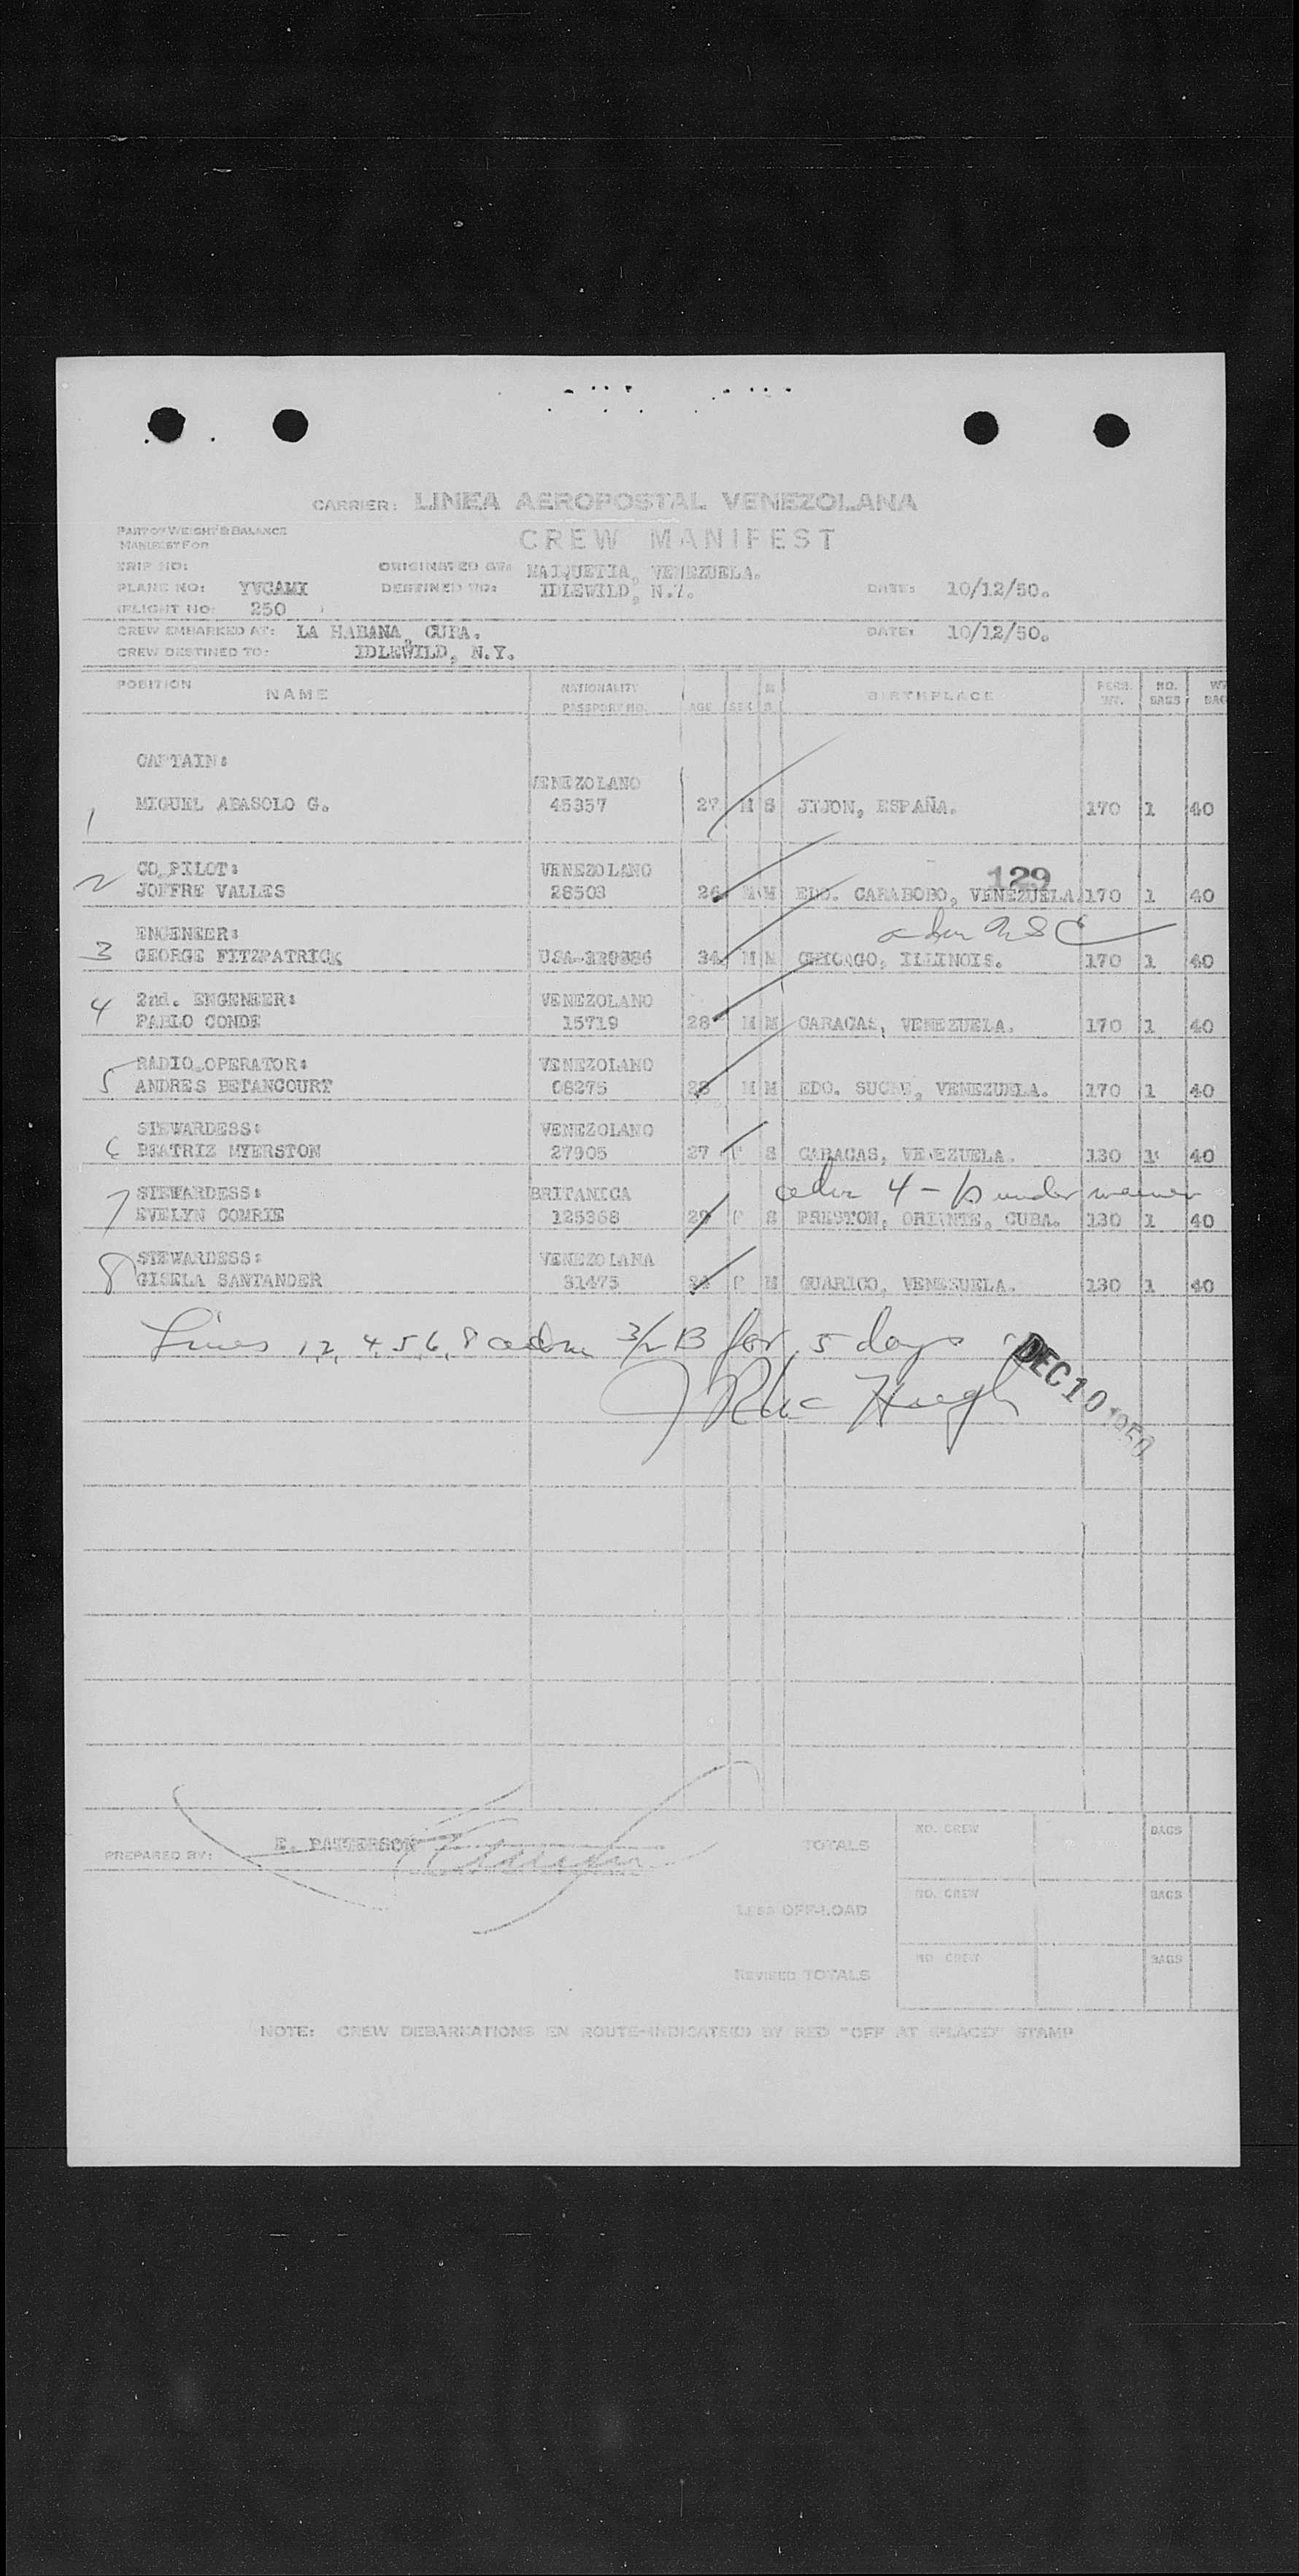 CARRIER: LINEA AEROPOSTAL VENEZOLANA
PART OF WEIGHT & BALANCE
MANIFEST FOR
CREW MANIFEST
TRIP NO:
ORIGINATED AT: MAIQUETIA, VENEZUELA.
PLANE NO: YVCAMI
DESTINED TO: IDLEWILD, N.Y.
DATE: 10/12/50.
FLIGHT NO: 250
CREW EMBARKED AT: LA HABANA, CUBA.
DATE: 10/12/50.
CREW DESTINED TO: IDLEWILD, N.Y.
POSITION NAME NATIONALITY PASSPORT NO. AGE SEX M S BIRTHPLACE PERS. WT. NO. BAGS WT BAG
CAPTAIN: VENEZOLANO
1 MIGUEL ABASOLO G. 45357 27 M S JIJON, ESPAÑA. 170 1 40
CO.PILOT: VENEZOLANO 129
2 JOFFRE VALLES 28503 26 M M EDO. CARABOBO, VENEZUELA. 170 1 40
ENGENEER: adm USC
3 GEORGE FITZPATRICK USA-329386 34 M M CHICAGO, ILLINOIS. 170 1 40
4 2nd. ENGENEER: VENEZOLANO
PABLO CONDE 15719 28 M M CARACAS, VENEZUELA. 170 1 40
RADIO.OPERATOR: VENEZOLANO
5 ANDRES BETANCOURT 08275 28 M M EDO. SUCRE, VENEZUELA. 170 1 40
STEWARDESS: VENEZOLANO
6 BEATRIZ MYERSTON 27905 27 F S CARACAS, VENEZUELA. 130 1 40
7 STEWARDESS: BRITANICA adm 4-b under waiver
EVELYN COMRIE 125368 29 F S PRESTON, ORIENTE, CUBA. 130 1 40
8 STEWARDESS: VENEZOLANA
GISELA SANTANDER 31475 24 F M GUARICO, VENEZUELA. 130 1 40
Lines 1, 2, 4, 5, 6, 8 adm 3/2 B for 5 days
DEC 10 1950
E. PATTERSON
PREPARED BY:
TOTALS NO. CREW BAGS
LESS OFF-LOAD NO. CREW BAGS
REVISED TOTALS NO. CREW BAGS
NOTE: CREW DEBARKATIONS EN ROUTE-INDICATE(D) BY RED "OFF AT (PLACE)" STAMP